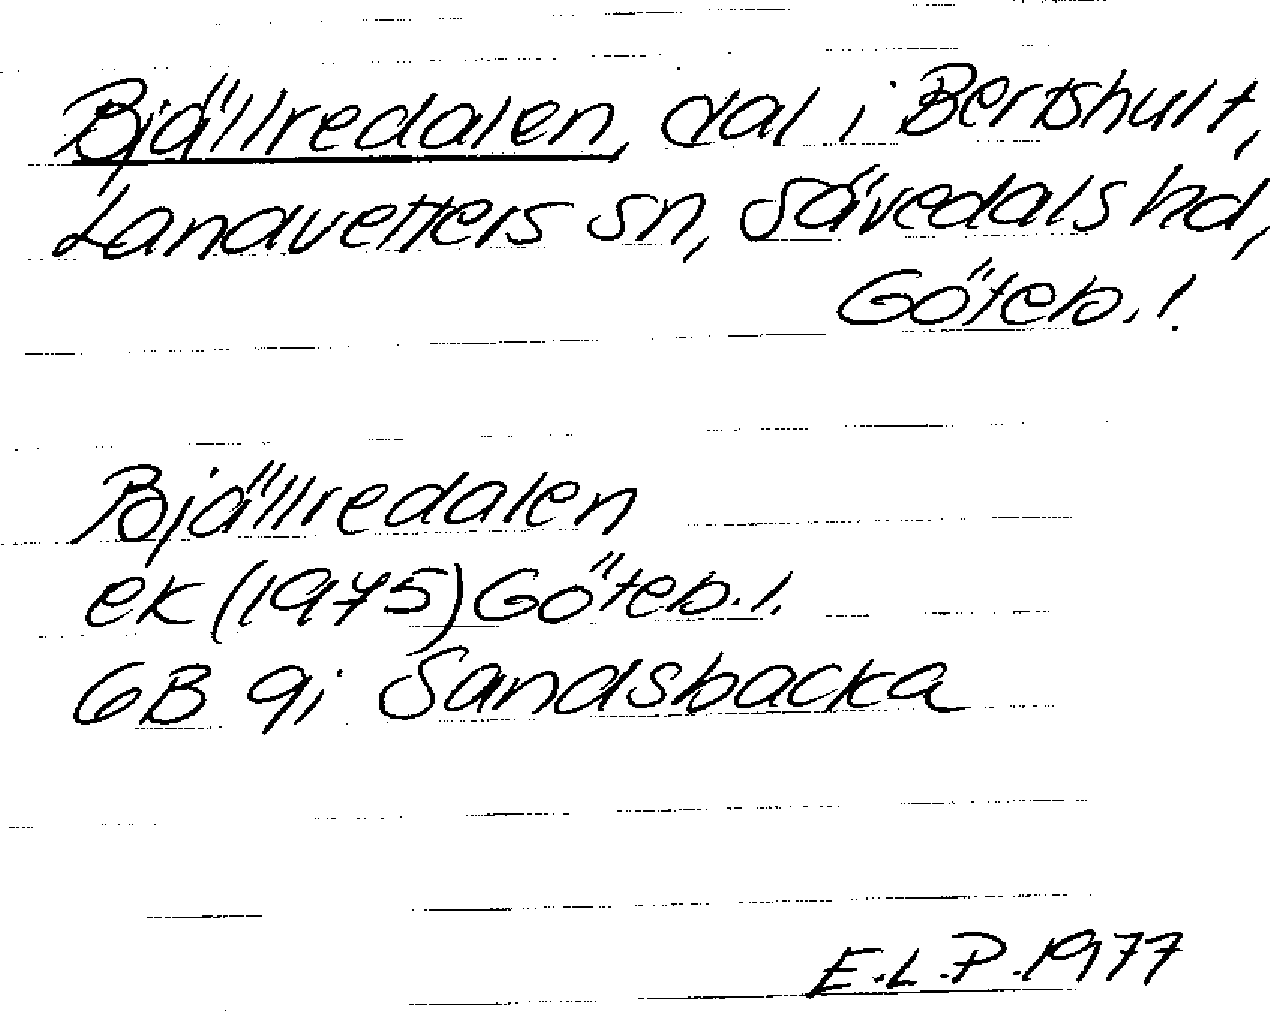 Bjällredalen, dal i Bertshult,
Landvetters sn, Sävedals hd,
Göteb. l.
Bjällredalen
ek (1975) Göteb. l.
6B 9i Sandsbacka
E.L.P. 1977